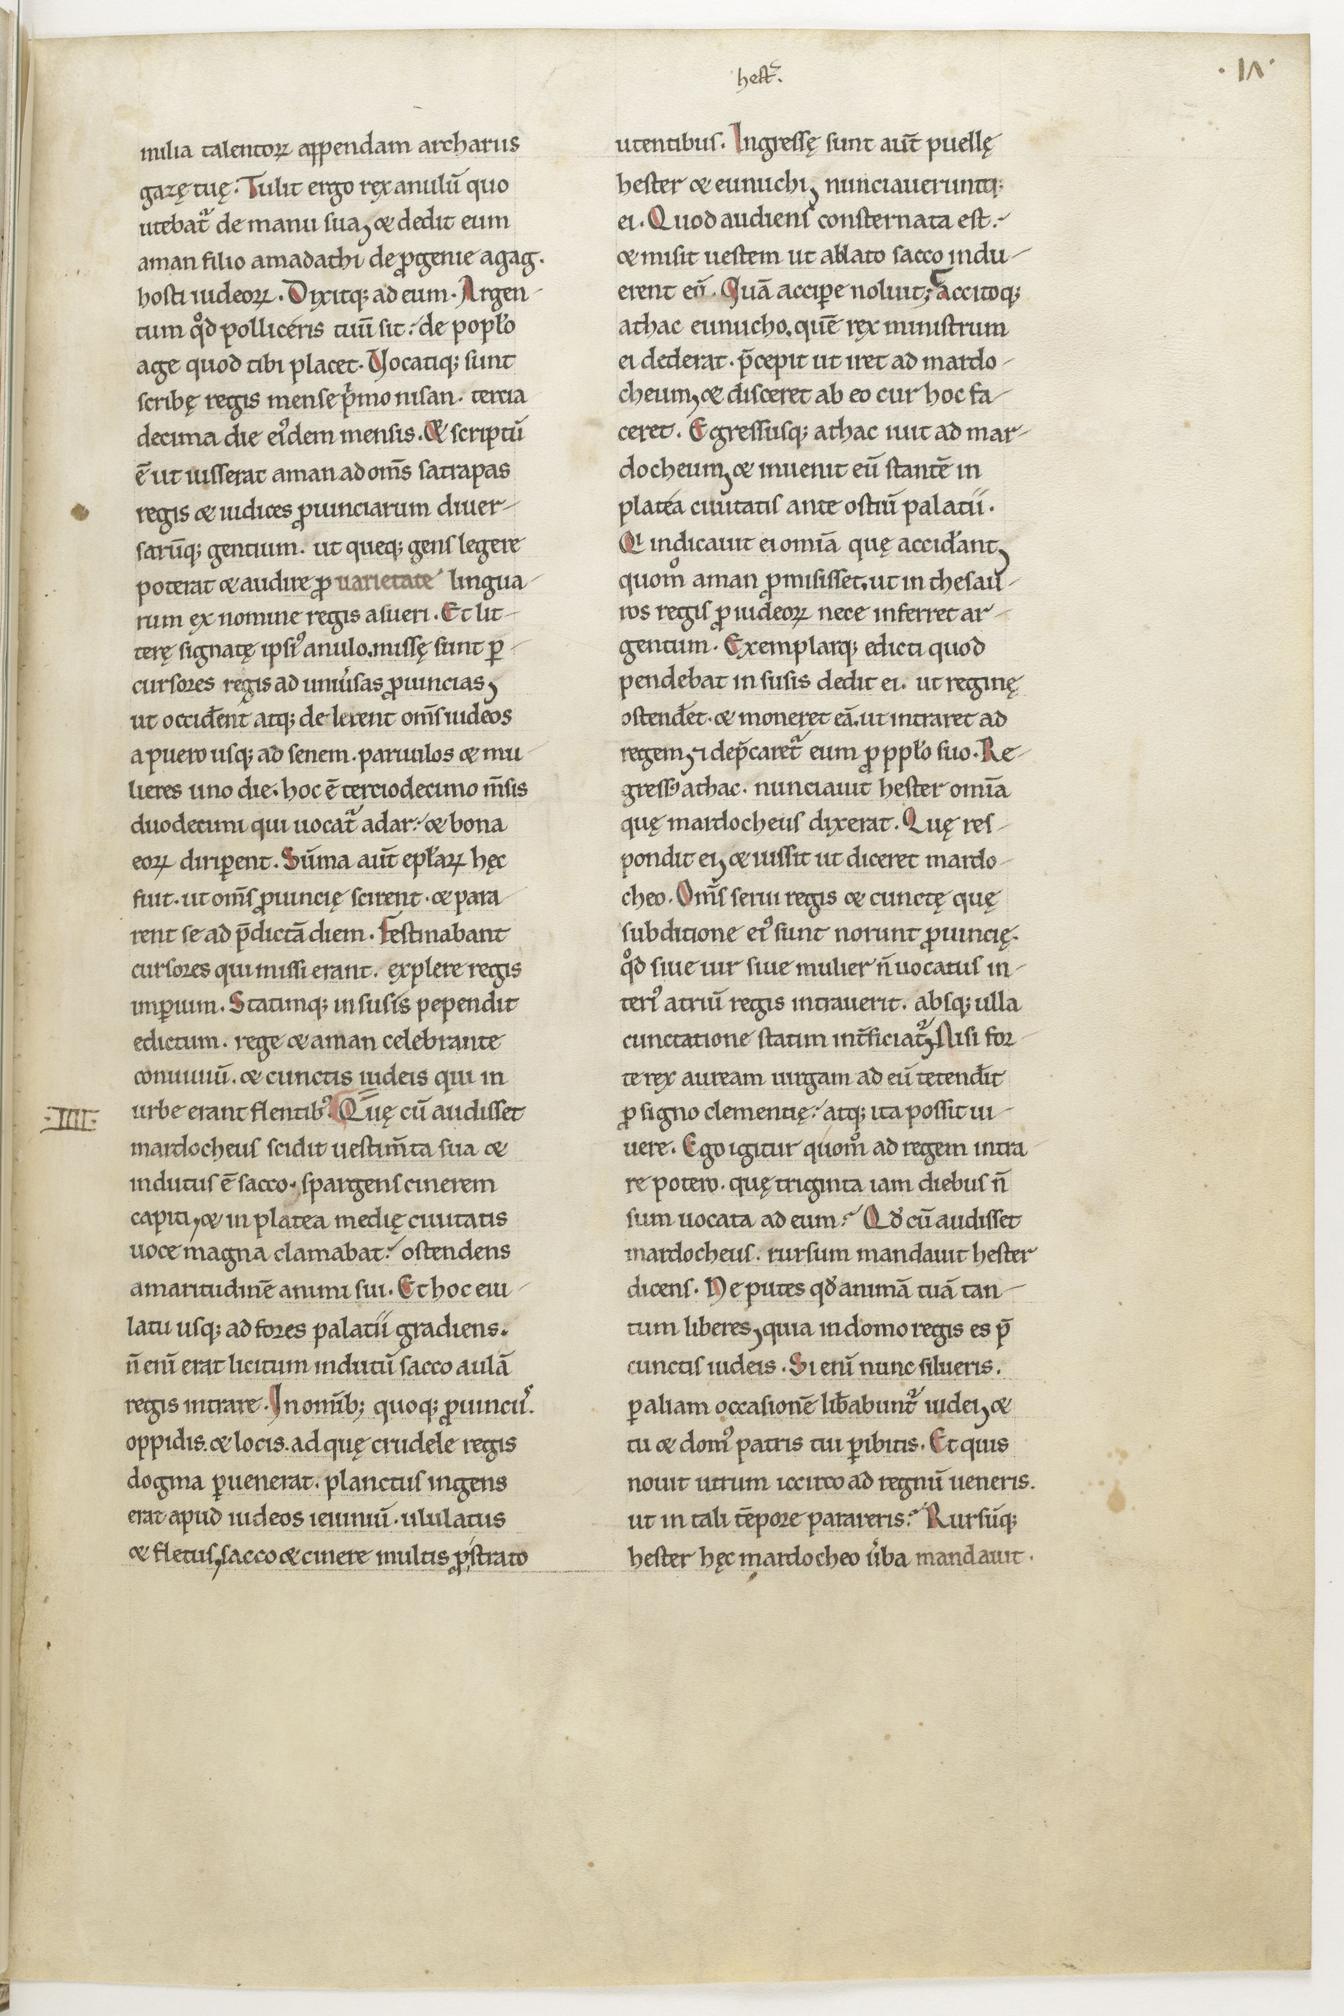 hest̃.
·IΛ·
milia talentoꝝ appendam archariis
gazę tuę. Tulit ergo rex anulū quo
utebat᷑ de manu sua, & dedit eum
aman filio amadathi de ꝓgenie agag.
hosti iudeoꝝ. Dixitq; ad eum. Argen-
tum qͦd polliceris tuū sit: de popło
age quod tibi placet. Vocatiq; sunt
scribę regis mense pͥmo nisan. tercia
decima die eiꝰdem mensis. & scriptū
ē ut iusserat aman ad om̄s satrapas
regis & iudices ꝓuinciarum diuer-
sarūq; gentium. ut queq; gens legere
poterat & audire ꝓ uarietate lingua-
rum ex nomine regis asueri. Et lit-
terę signatę ipsiꝰ anulo. missę sunt ꝑ
cursores regis ad uniūsas ꝓuincias,
ut occiderent atq; delerent om̄s iudeos
a puero usq; ad senem. paruulos & mu-
lieres uno die. hoc ē terciodecimo m̄sis
duodecimi qui uocat᷑ adar: & bona
eoꝝ diriꝑent. Sūma aūt epłaꝝ hęc
fuit. ut om̄s ꝓuincię scirent. & para-
rent se ad p̄dictā diem. Festinabant
cursores qui missi erant. explere regis
imꝑium. Statimq; in susis pependit
edictum. rege & aman celebrante
conuiuiū. & cunctis iudeis qui in
urbe erant flentibꝰ. Quę cū audisset
·IIII·
mardocheus scidit uestim̄ta sua &
indutus ē sacco. spargens cinerem
capiti, & in platea medię ciuitatis
uoce magna clamabat: ostendens
amaritudinē animi sui. Et hoc eiu-
latu usq; ad fores palatii gradiens.
n̄ enī erat licitum indutū sacco aulā
regis intrare. In omīb; quoq; ꝓuinciis.
oppidis. & locis. ad quę crudele regis
dogma ꝑuenerat. planctus ingens
erat apud iudeos ieiuniū. ululatus
& fletus, sacco & cinere multis ꝓstrato
utentibus. Ingressę sunt aūt puellę
hester & eunuchi, nunciaueruntq;
ei. Quod audiens consternata est:
& misit uestem ut ablato sacco indu-
erent eū. Quā acciꝑe noluit; Accitoq;
athac eunucho. quē rex ministrum
ei dederat. p̄cepit ut iret ad mardo-
cheum, & disceret ab eo cur hoc fa-
ceret. Egressusq; athac iuit ad mar-
docheum, & inuenit eū stantē in
platea ciuitatis ante ostiū palatii.
Qi indicauit ei omīa quę acciderant,
quom̊ aman ꝓmisisset. ut in thesau-
ros regis ꝓ iudeoꝝ nece inferret ar-
gentum. Exemplarq; edicti quod
pendebat in susis dedit ei. ut reginę
ostenderet. & moneret eā. ut intraret ad
regem, ⁊ dep̄caret᷑ eum ꝓ ppło suo. Re-
gressꝰ athac. nunciauit hester omīa
quę mardocheus dixerat. Quę res-
pondit ei, & iussit ut diceret mardo-
cheo. Om̄s serui regis & cunctę quę
sub ditione eiꝰ sunt norunt ꝓuincię.
qͦd siue uir siue mulier n̄ uocatus in-
teriꝰ atriū regis intrauerit. absq; ulla
cunctatione statim int̄ficiat᷑, Nisi for-
te rex auream uirgam ad eū tetenderit
ꝓ signo clementię: atq; ita possit ui-
uere. Ego igitur quom̊ ad regem intra-
re potero. quę triginta iam diebus n̄
sum uocata ad eum: Qd̃ cū audisset
mardocheus. rursum mandauit hester
dicens. Ne putes qd̃ animā tuā tan-
tum liberes, quia in domo regis es p̄
cunctis iudeis. Si enī nunc silueris.
ꝑ aliam occasionē liƀabunt᷑ iudei, &
tu & domꝰ patris tui ꝑibitis. Et quis
nouit utrum iccirco ad regnū ueneris.
ut in tali tēpore parareris: Rursūq;
hester hęc mardocheo ūba mandauit.